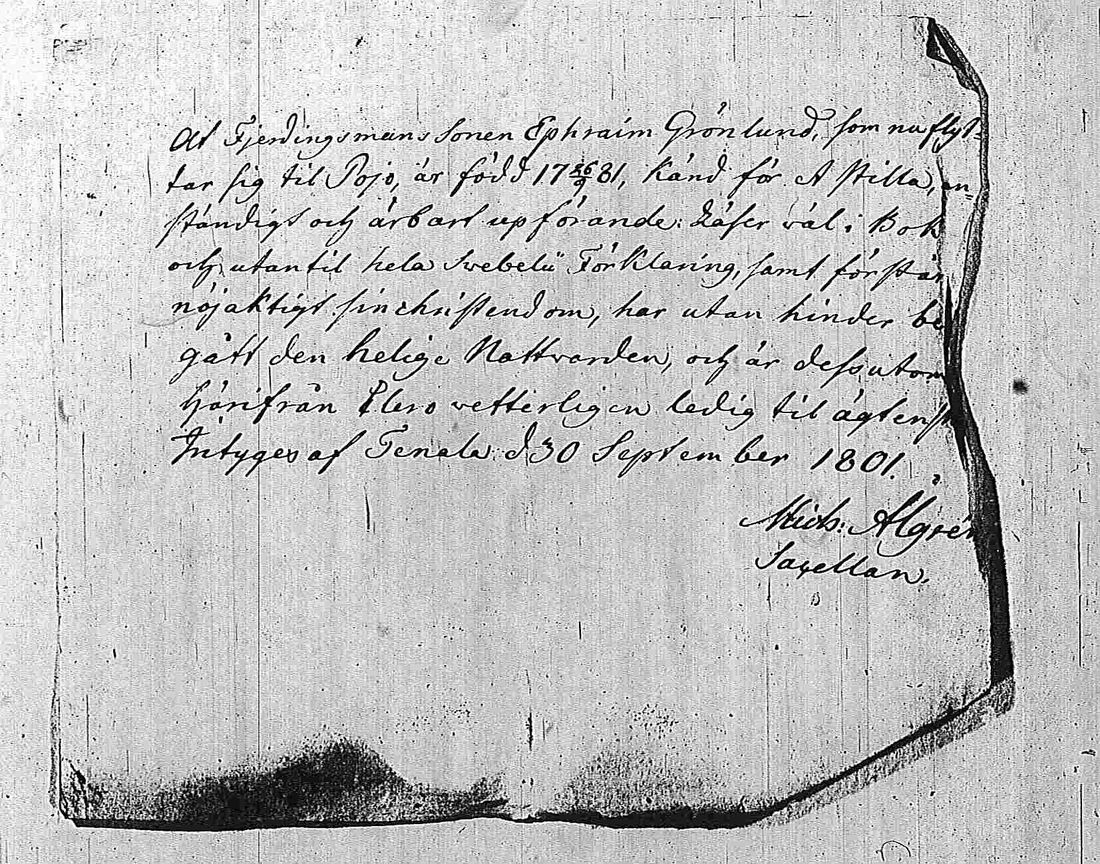 At Fjerdingsmans Sonen Ephraim Grönlund, som nu flyt-
tar sig til Pojo, är född 17 26/9 81, känd för et stilla, an-
ständigt och ärbart upförande: Läser väl i Bok
och utantil hela Swebelii Förklaring, samt förstår
nöjaktigt sin christendom, har utan hinder be
gått den helige Nattvarden, och är dessutom
Härifrån vetterligen ledig til ägtensk
Intyges af Tenala d 30 September 1801.
Mich: Algrén
Sacellan.